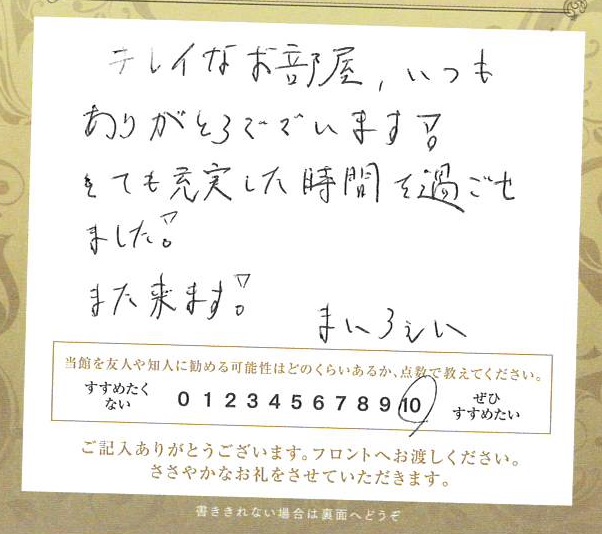 キレイなお部屋、いつも
ありがとうございます!
とても充実した時間を過ごせ
ました!
また来ます!
まいろぇい
当館を友人や知人に勧める可能性はどのくらいあるか、点数で教えてください。
すすめたくない 0 1 2 3 4 5 6 7 8 9 10 ぜひすすめたい
ご記入ありがとうございます。フロントへお渡しください。
ささやかなお礼をさせていただきます。
書ききれない場合は裏面へどうぞ